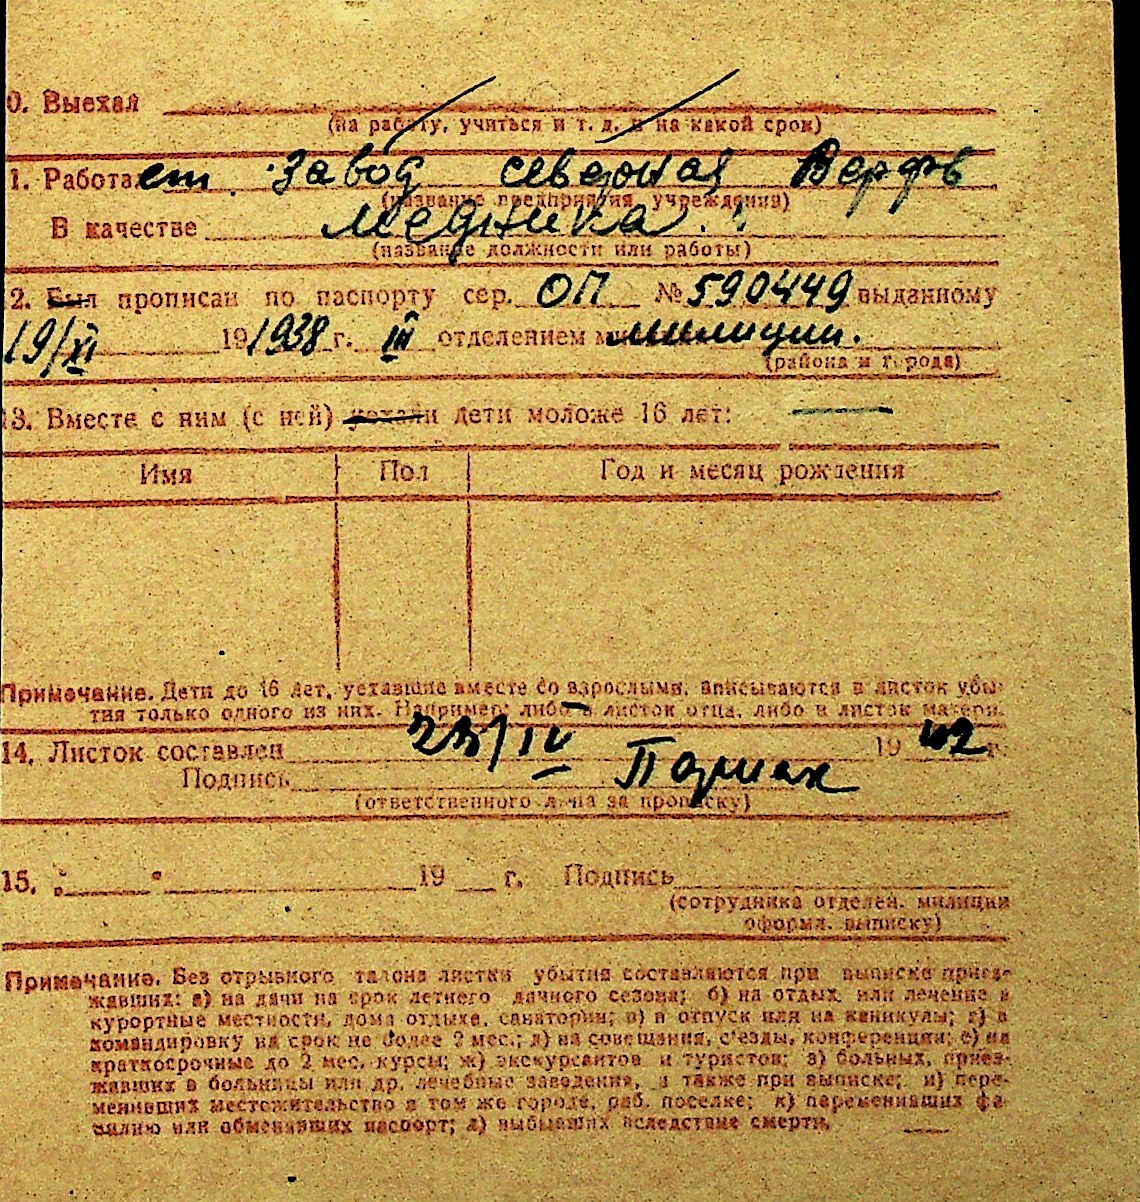 0. Выехал
(на работу, учиться и т. д. и на какой срок)
1. Работает Завод северная Верфь
(название предприятия учреждения)
В качестве медника
(название должности или работы)
2. Был прописан по паспорту сер. ОП № 590449 выданному
19/XI 19 1938 г. III отделением милиции.
(района и города)
13. Вместе с ним (с ней) уехали дети моложе 16 лет: —
Имя Пол Год и месяц рождения
Примечание. Дети до 16 лет, уехавшие вместе со взрослыми, вписываются в листок убы-
тия только одного из них. Например: либо в листок отца, либо в листок матери.
14. Листок составлен 23/IV 19 42 г.
Подпись
(ответственного лица за прописку)
15. " " 19 г. Подпись
(сотрудника отделен. милиции
оформл. выписку)
Примечание. Без отрывного талона листки убытия составляются при выписке приез-
жавших: а) на дачи на срок летнего дачного сезона; б) на отдых или лечение в
курортные местности, дома отдыха, санатории; в) в отпуск или на каникулы; г) в
командировку на срок не более 2 мес.; д) на совещания, с'езды, конференции; е) на
краткосрочные до 2 мес. курсы; ж) экскурсантов и туристов; з) больных, приез-
жавших в больницы или др. лечебные заведения, а также при выписке; и) пере-
менивших местожительство в том же городе, раб. поселке; к) переменивших фа-
милию или обменявших паспорт; л) выбывших вследствие смерти.